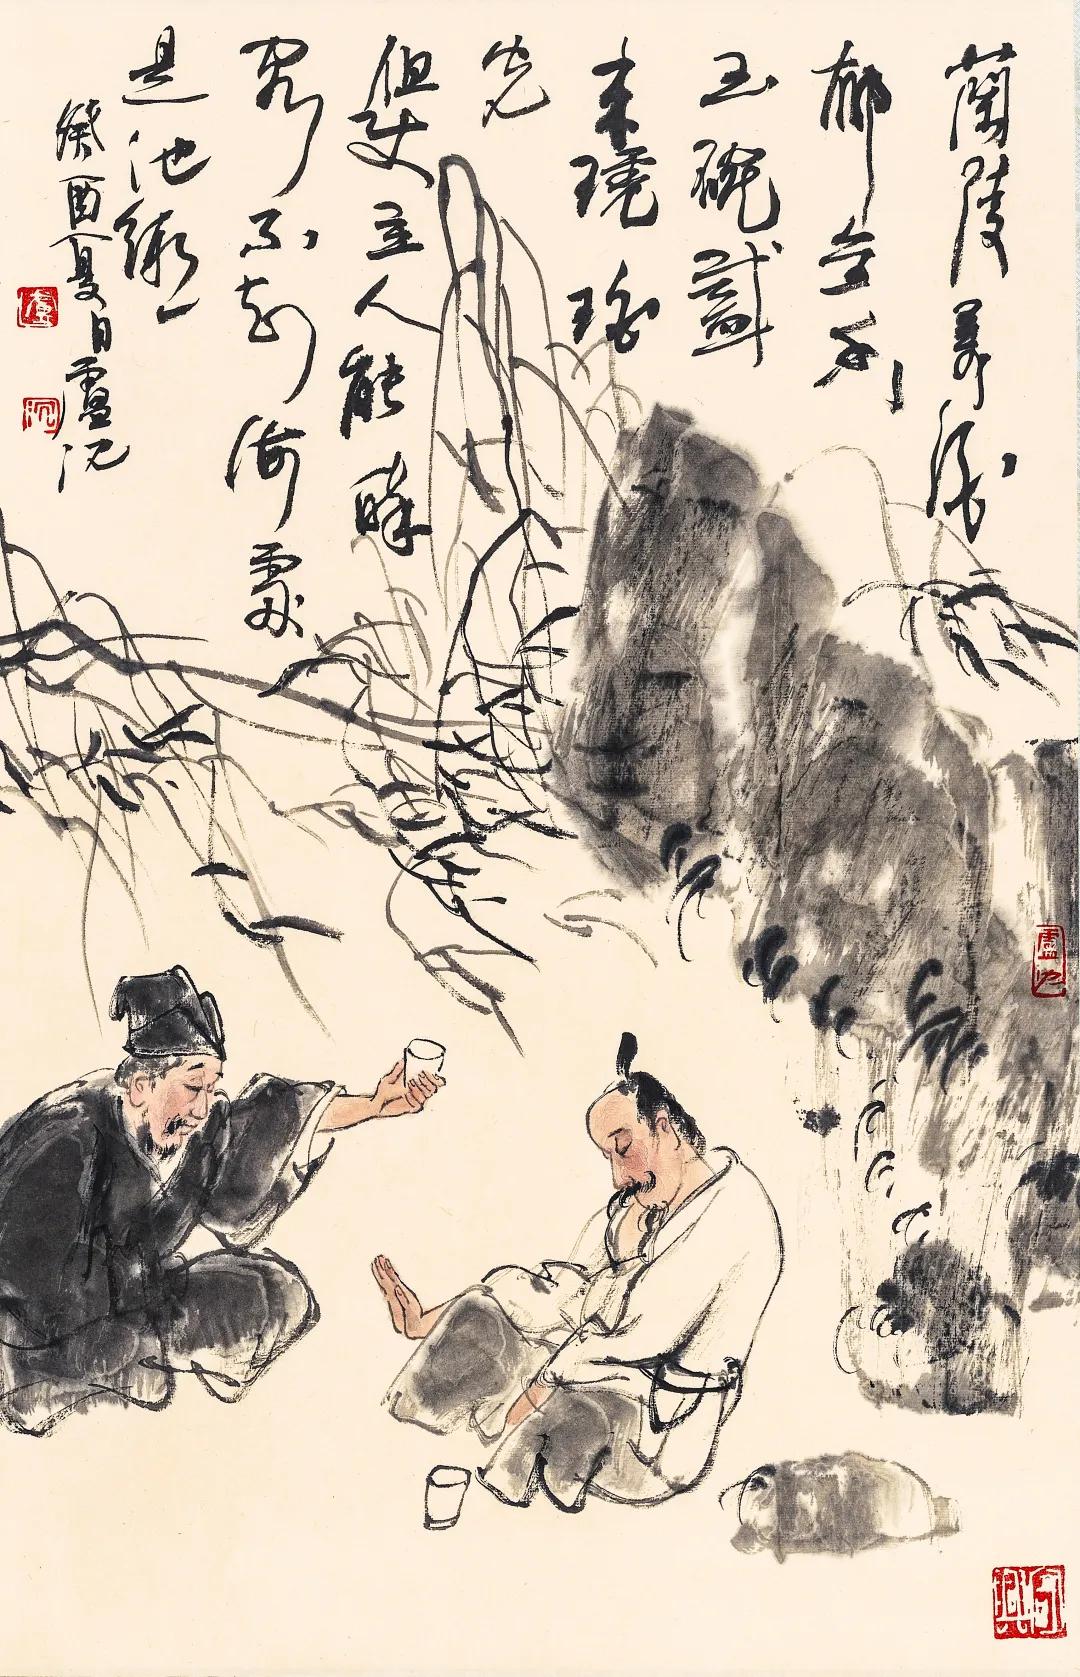 蘭陵美酒
郁金香
玉碗盛
來琥珀
光
但使主人能醉
客不知何處
是他鄉
癸酉夏日盧沉
盧
沉
盧沉